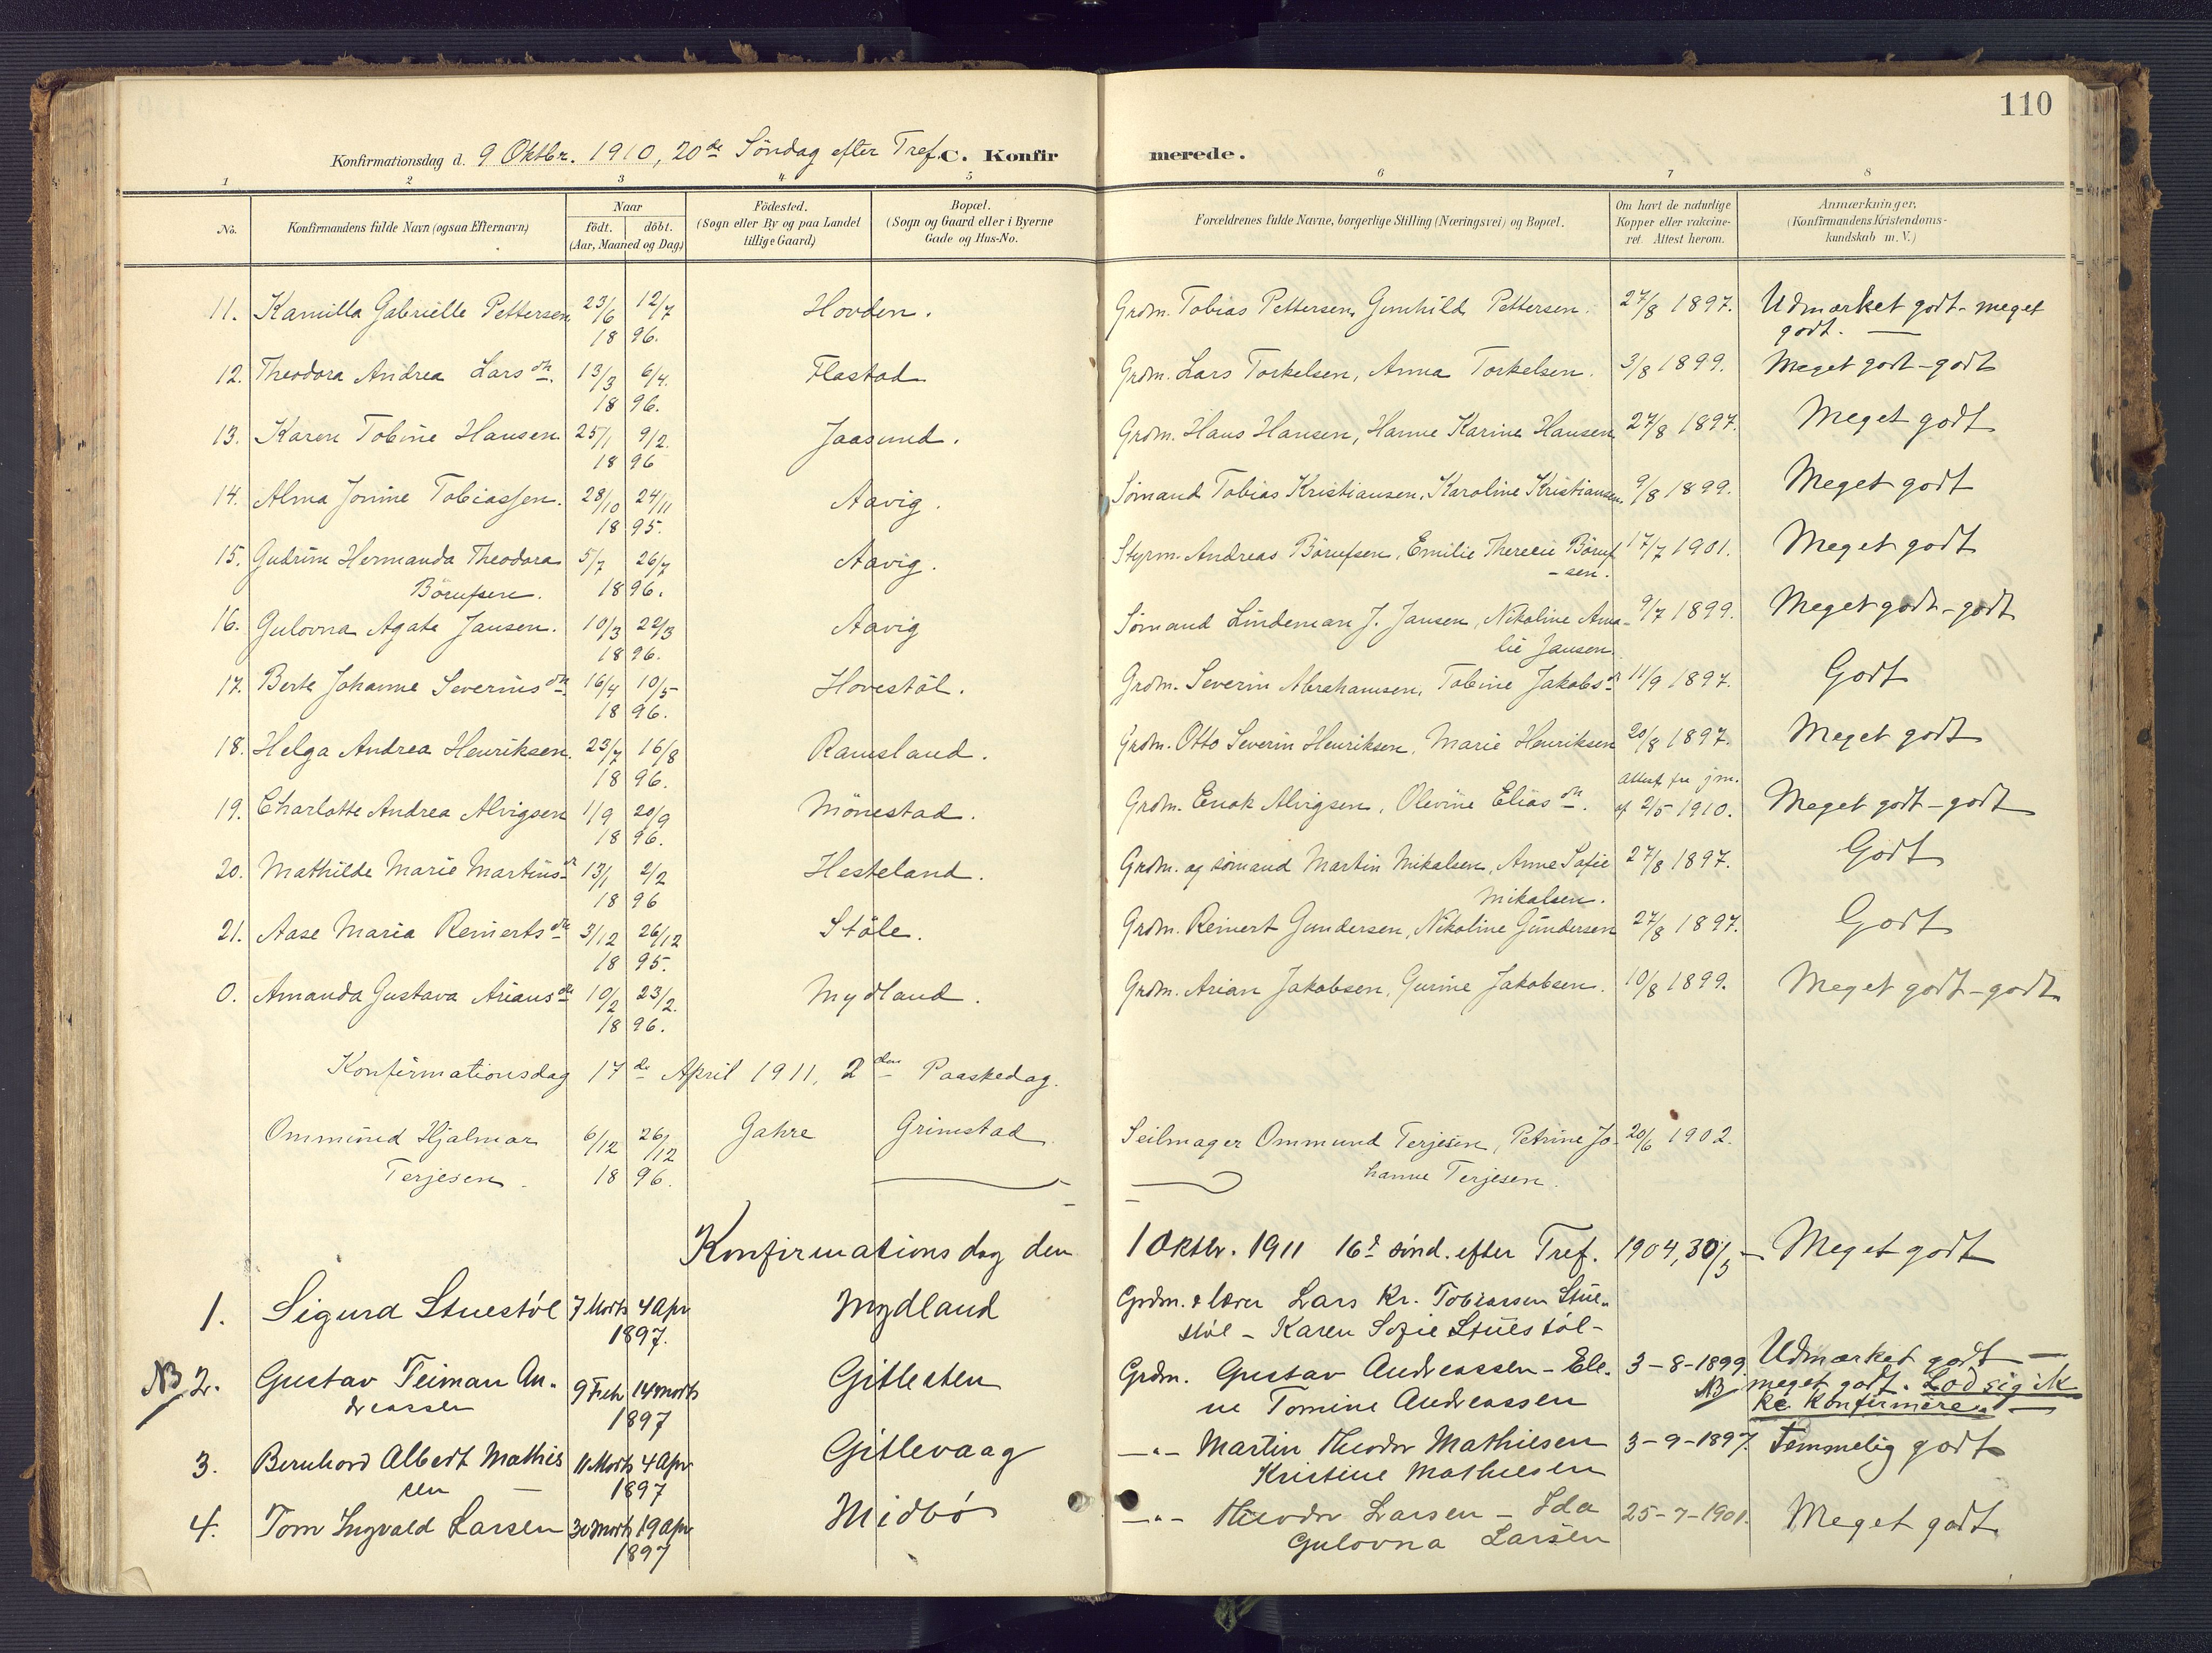 110
Konfirmationsdag d. 9 Oktbr. 1910, 20de Söndag efter Tref. C. Konfirmerede.
1 2 3 4 5 6 7 8
No. Konfirmandens fulde Navn (ogsaa Efternavn) Naar födt. döbt. (Aar, Maaned og Dag) Födested. (Sogn eller By og paa Landet tillige Gaard) Bopæl. (Sogn og Gaard eller i Byerne Gade og Hus-No. Forældrenes fulde Navne, borgerlige Stilling (Næringsvei) og Bopæl. Om havt de naturlige Kopper eller vakcineret. Attest herom. Anmærkninger, (Konfirmandens Kristendomskundskab m. V.)
11. Kamilla Gabrielle Pettersen 23/6 12/7 Hovden. Grdm. Tobias Pettersen, Gunhild Pettersen. 27/8 1897. Udmærket godt - meget
1896. godt. —
12. Theodora Andrea Larsdtr. 13/3 6/4. Flastad Grdm. Lars Torkelsen, Anna Torkelsen. 3/8 1899. Meget godt - godt
1896.
13. Karen Tobine Hansen 25/1 9/2. Jaasund. Grdm. Hans Hansen, Hanne Karine Hansen 27/8 1897. Meget godt
1896
14. Alma Jonine Tobiassen. 28/10 24/11 Aavig. Sömand Tobias Kristiansen, Karoline Kristiansen 9/8 1899. Meget godt
1895.
15. Gudrun Hermanda Theodora 5/7 26/7 Aavig. Styrm. Andreas Börufsen, Emilie Therecie Böruf 17/7 1901. Meget godt
Börufsen. 1896. - sen.
16. Gulovna Agate Jansen. 10/3 22/3 Aavig Sömand Lindeman J. Jansen, Nikoline Ama- 9/7 1899. Meget godt - godt
1896. lie Jansen.
17. Berte Johanne Severinsdtr. 16/4 10/5 Hovestöl. Grdm. Severin Abrahamsen, Tobine Jakobsd. 11/9 1897. Godt
1896.
18. Helga Andrea Henriksen. 23/7 16/8 Ramsland. Grdm. Otto Severin Henriksen, Marie Henriksen 20/8 1897. Meget godt
1896.
19. Charlotte Andrea Alvigsen 1/9 20/9 Mönestad. Grdm. Enok Alvigsen, Olevine Eliasdtr. Attest fra jm. af 2/5 1910. Meget godt - godt
1896.
20. Mathilde Marie Martinsd. 13/1 2/2 Hesteland. Grdm. og sömand Martin Mikalsen, Anne Sofie 27/8 1897. Godt
1896 Mikalsen.
21. Aase Maria Reinertsdtr. 3/12 26/12 Ståle. Grdm. Reinert Gundersen, Nikoline Gundersen 27/8 1897. Godt
1895.
0. Amanda Gustava Ariansdtr. 10/2 23/2. Mydland. Grdm. Arian Jakobsen, Gurine Jakobsen. 10/8 1899. Meget godt - godt
1896.
Konfirmationsdag 17de April 1911, 2den Paaskedag.
Ommund Hjalmar 6/12 26/12 Jahre Grimstad Seilmager Ommund Terjesen, Petrine Jo- 20/6 1902.
Terjesen. 1896. hanne Terjesen.
Konfirmationsdag den 1 Oktbr. 1911 16d sönd. efter Tref. 1904, 30/5 - Meget godt
1. Sigurd Stuestöl 7 Marts 4 Apr Mydland Grdm. & lærer Lars Kr. Tobiassen Stue-
1897. stöl - Karen Sofie Stuestöl -
NB 2. Gustav Teiman An- 9 Febr 14 Marts Gitlesten Grdm. Gustav Andreassen - Ele- 3-8-1899 Udmærket godt -
dreassen 1897 ne Tomine Andreassen NB meget godt. Lod sig ik
ke konfirmere. -
3. Bernhard Albert Mathie 11 Marts 4 Apr Gitlevaag —"— Martin Theodor Mathiesen 3-9-1897. Temmelig godt
sen — 1897 Kristine Mathiesen
4. Tom Ingvald Larsen 30 Marts 19 Apr Midbö —"— Theodor Larsen - Ida 25-7-1901. Meget godt.
1897 Gulovna Larsen